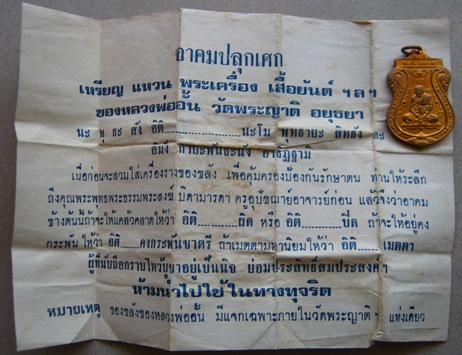 อาคมปลุกเศก
เหรียญ แหวน พระเครื่อง เสื้อยันต์ ฯลฯ
ของหลวงพ่ออั้น วัดพระญาติ อยุธยา
นะ พุ ทธ สัง อิติ............นะโม พุทธายะ อิทธัง
อิมัง กายะพันธะนัง อาธิฏฐามิ
เมื่อก่อนจะสวมใส่เครื่องรางของขลัง เพื่อคุ้มครองป้องกันรักษาตน ท่านให้ระลึก
ถึงคุณพระพุทธพระธรรมพระสงฆ์ บิดามารดา ครูอุปัชฌาย์อาจารย์ก่อน แล้วจึงว่าอาคม
ข้างต้นนี้ถ้าจะให้แคล้วคลาดให้ว่า อิติ........ผิด หรือ อิติ.........ปิด ถ้าจะให้อยู่คง
กระพัน ให้ว่า อิติ.......คงกระพันชาตรี ถ้าเมตตามหานิยมให้ว่า อิติ.......เมตตา
ผู้ที่นับถือกราบไหว้บูชาอยู่เป็นนิจ ย่อมประสิทธิ์สมประสงค์ฯ
ห้ามนำไปใช้ในทางทุจริต
หมายเหตุ ของขลังของหลวงพ่ออั้น มีแจกเฉพาะภายในวัดพระญาติ ฯ แห่งเดียว